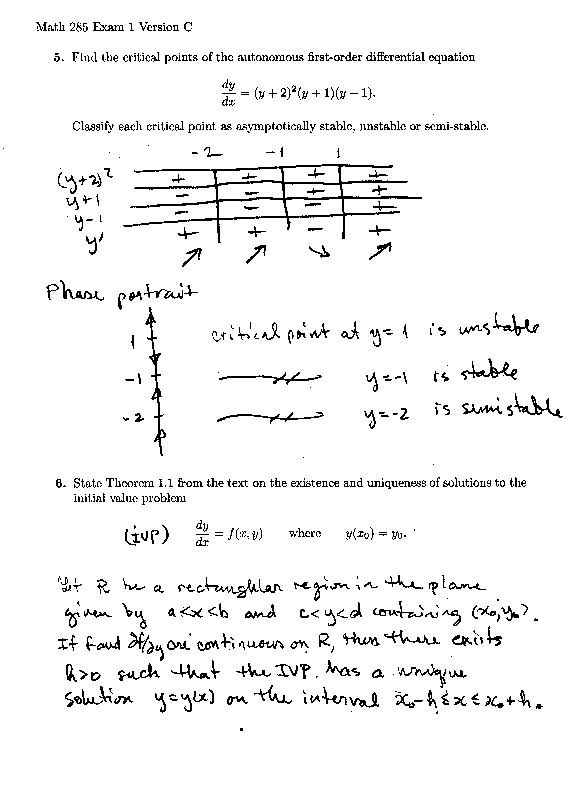 Math 285 Exam 1 Version C
5. Find the critical points of the autonomous first-order differential equation
dy/dx = (y + 2)²(y + 1)(y − 1).
Classify each critical point as asymptotically stable, unstable or semi-stable.
-2 -1 1
(y+2)² + + + +
y+1 − − + +
y-1 − − − +
y' + + − +
Phase portrait
1 critical point at y=1 is unstable
-1 —〃— y=-1 is stable
-2 —〃— y=-2 is semistable
6. State Theorem 1.1 from the text on the existence and uniqueness of solutions to the
initial value problem
(IVP) dy/dx = f(x, y) where y(x₀) = y₀.
Let R be a rectanghlar region in the plane
given by a<x<b and c<y<d containing (x₀,y₀).
If f and ∂f/∂y are continuous on R, then there exists
h>0 such that the IVP has a unique
solution y=y(x) on the interval x₀-h≤x≤x₀+h.